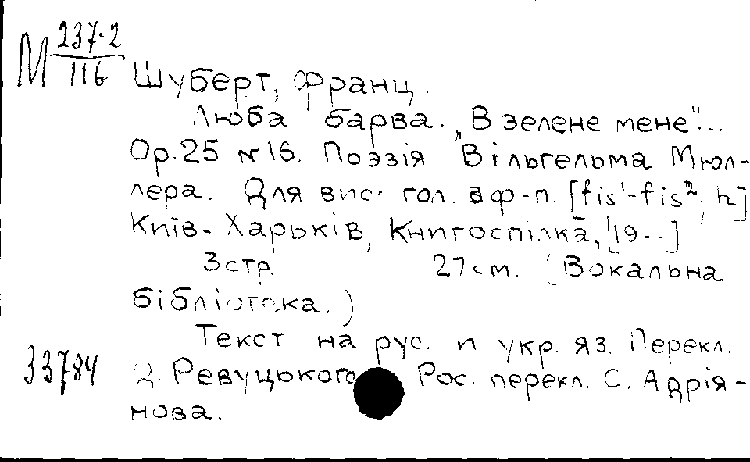 М 237-2
116
Шуберт, Франц.
Люба барва. „В зелене мене"...
Ор.25 №16. Поэзія Вільгельма Мюл-
лера. Для вис. гол. в ф-п. [fis¹-fis², h]
Київ-Харьків, Книгоспілка, [19--]
3 стр. 27 см. (Вокальна
бібліотека.)
Текст на рус. и укр. яз. Перекл.
33784
Д. Ревуцького Рос. перекл. С. Адрія-
нова.